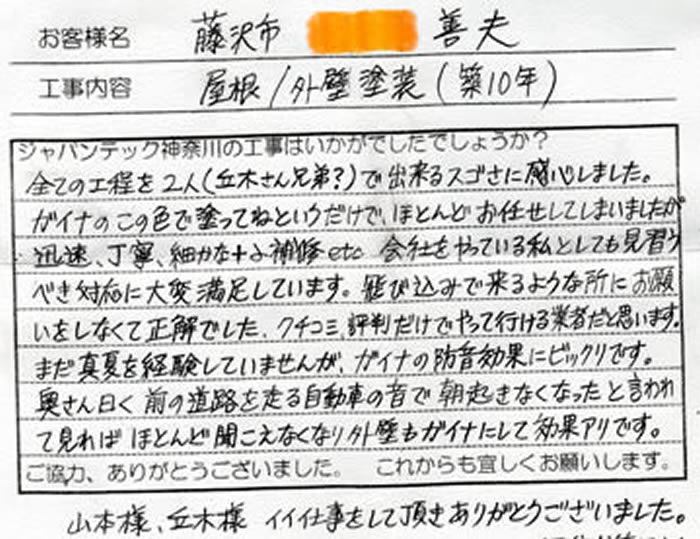 お客様名 藤沢市 善夫
工事内容 屋根/外壁塗装(築10年)
ジャパンテック神奈川の工事はいかがでしたでしょうか?
全ての工程を2人(丘木さん兄弟?)で出来るスゴさに感心しました。
ガイナのこの色で塗ってねというだけで、ほとんどお任せしてしまいましたが
迅速、丁寧、細かな補修etc 会社をやっている私としても見習う
べき対応に大変満足しています。飛び込みで来るような所にお願
いをしなくて正解でした、クチコミ、評判だけでやって行ける業者だと思います。
まだ真夏を経験していませんが、ガイナの防音効果にビックリです。
奥さん曰く 前の道路を走る自動車の音で朝起きなくなったと言われ
て見ればほとんど聞こえなくなり外壁もガイナにして効果アリです。
ご協力、ありがとうございました。 これからも宜しくお願いします。
山本様、丘木様 イイ仕事をして頂きありがとうございました。